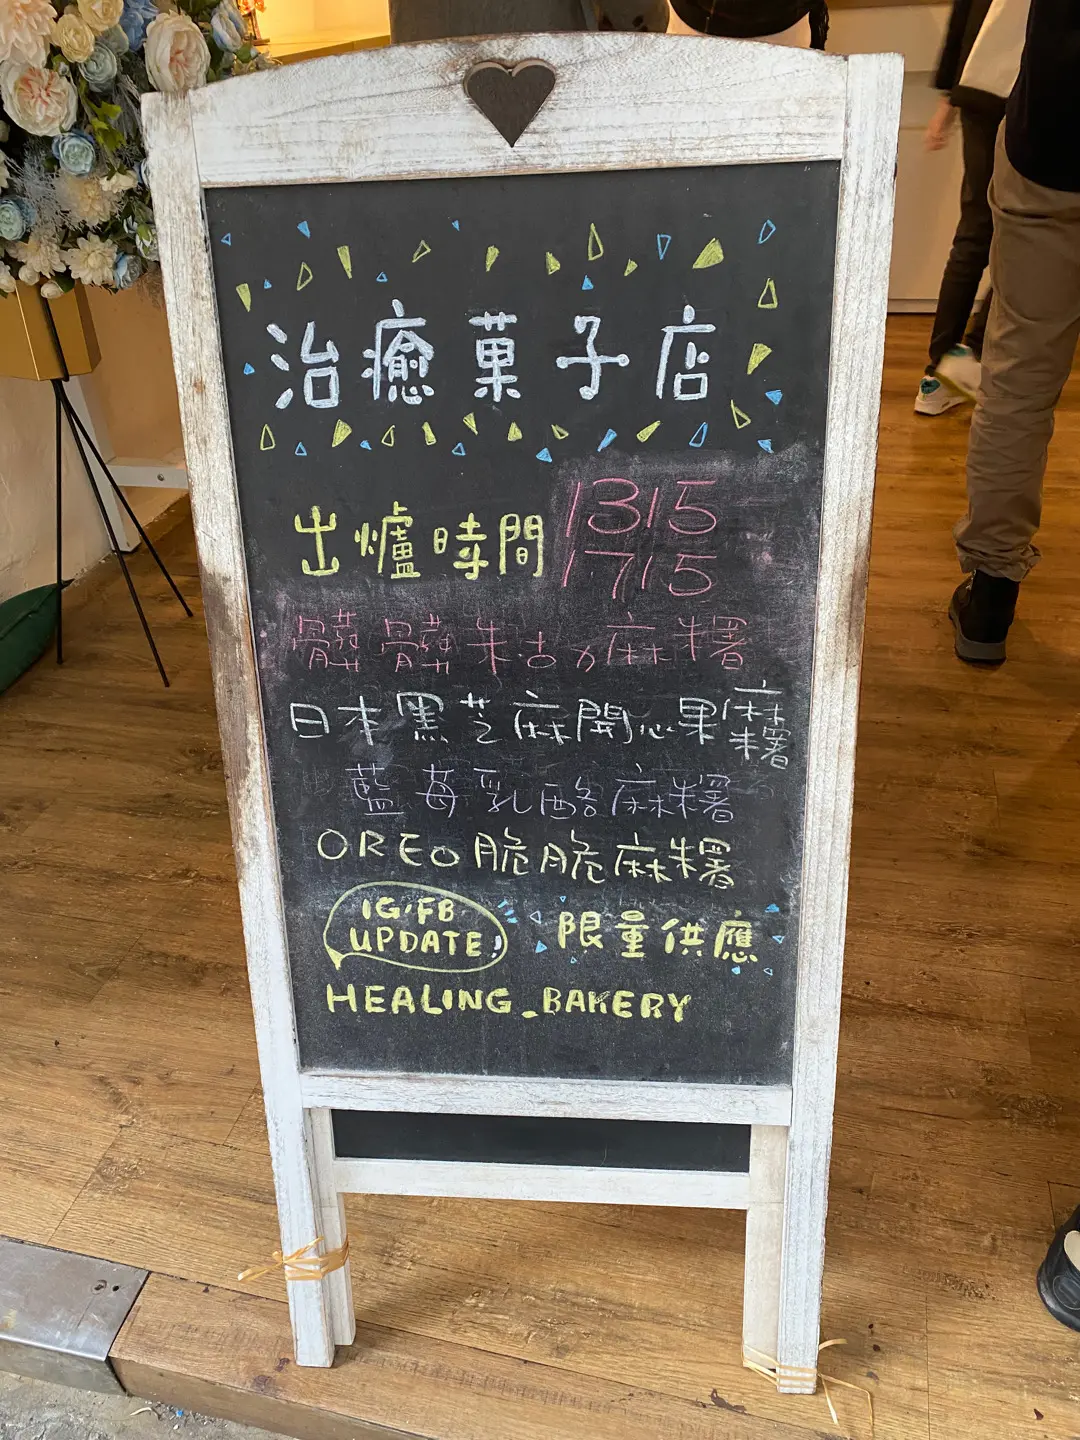 治癒菓子店
出爐時間 1315
1715
髒髒朱古力麻糬
日本黑芝麻開心果麻糬
藍莓乳酪麻糬
OREO脆脆麻糬
IG/FB
UPDATE!
限量供應
HEALING_BAKERY